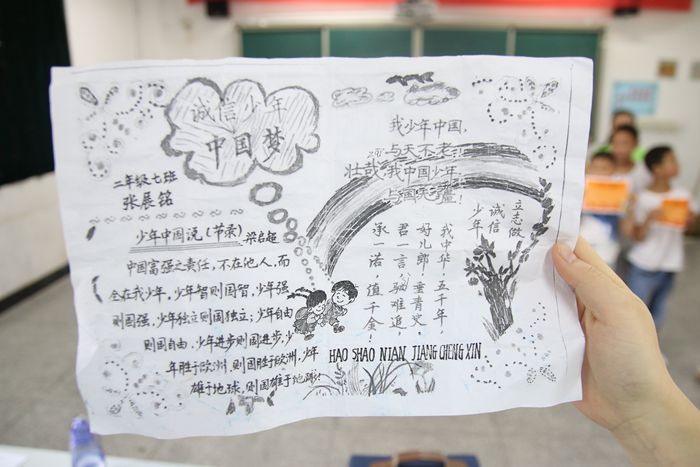 诚信少年
中国梦
二年级七班
张展铭
少年中国说(节录) 梁启超
中国富强之责任,不在他人,而
全在我少年,少年智则国智,少年强
则国强,少年独立则国独立;少年自由
则国自由,少年进步则国进步,少
年胜于欧洲,则国胜于欧洲,少年
雄于地球,则国雄于地球!
我少年中国,
与天不老;
壮哉,我中国少年
与国无疆!
立志做
诚信
少年
我中华!五千年,
好儿郎!垂青史,
君一言,驷难追,
承一诺,值千金!
HAO SHAO NIAN JIANG CHENG XIN